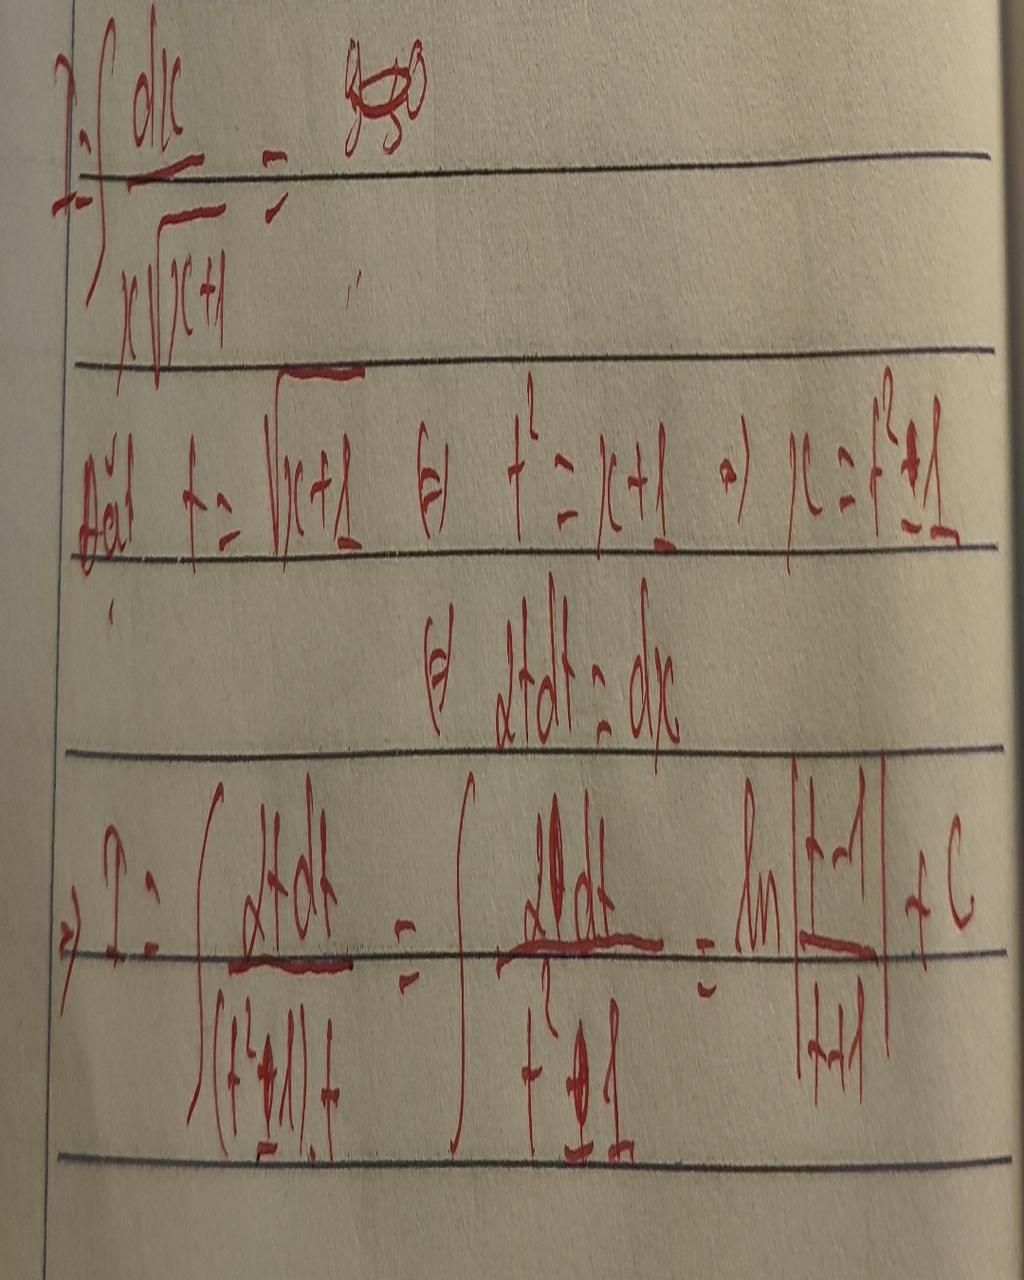 I = ∫ dx / (x√(x+1)) =
Đặt t = √(x+1) ⇔ t² = x+1 ⇒ x = t² - 1
⇔ 2tdt = dx
⇒ I = ∫ 2tdt / ((t² - 1).t) = ∫ 2dt / (t² - 1) = ln |(t-1)/(t+1)| + C